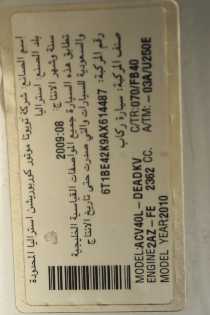 اسم الصانع : شركة تويوتا موتور كوربوريشن استراليا المحدودة
بلد الصنع : استراليا
سنة وشهر الانتاج : 2009:08
تطابق هذه السيارة جميع المواصفات القياسية الخليجية
والسعودية للسيارات والتي صدرت حتى تاريخ الانتاج
رقم المركبة: 6T1BE42K9AX614487
صنف المركبة: سيارة ركاب
MODEL:ACV40L-DEADKV
ENGINE2AZ-FE 2362 CC.
MODEL YEAR2010
C/TR:070/FB40
A/TM:-03A/U250E